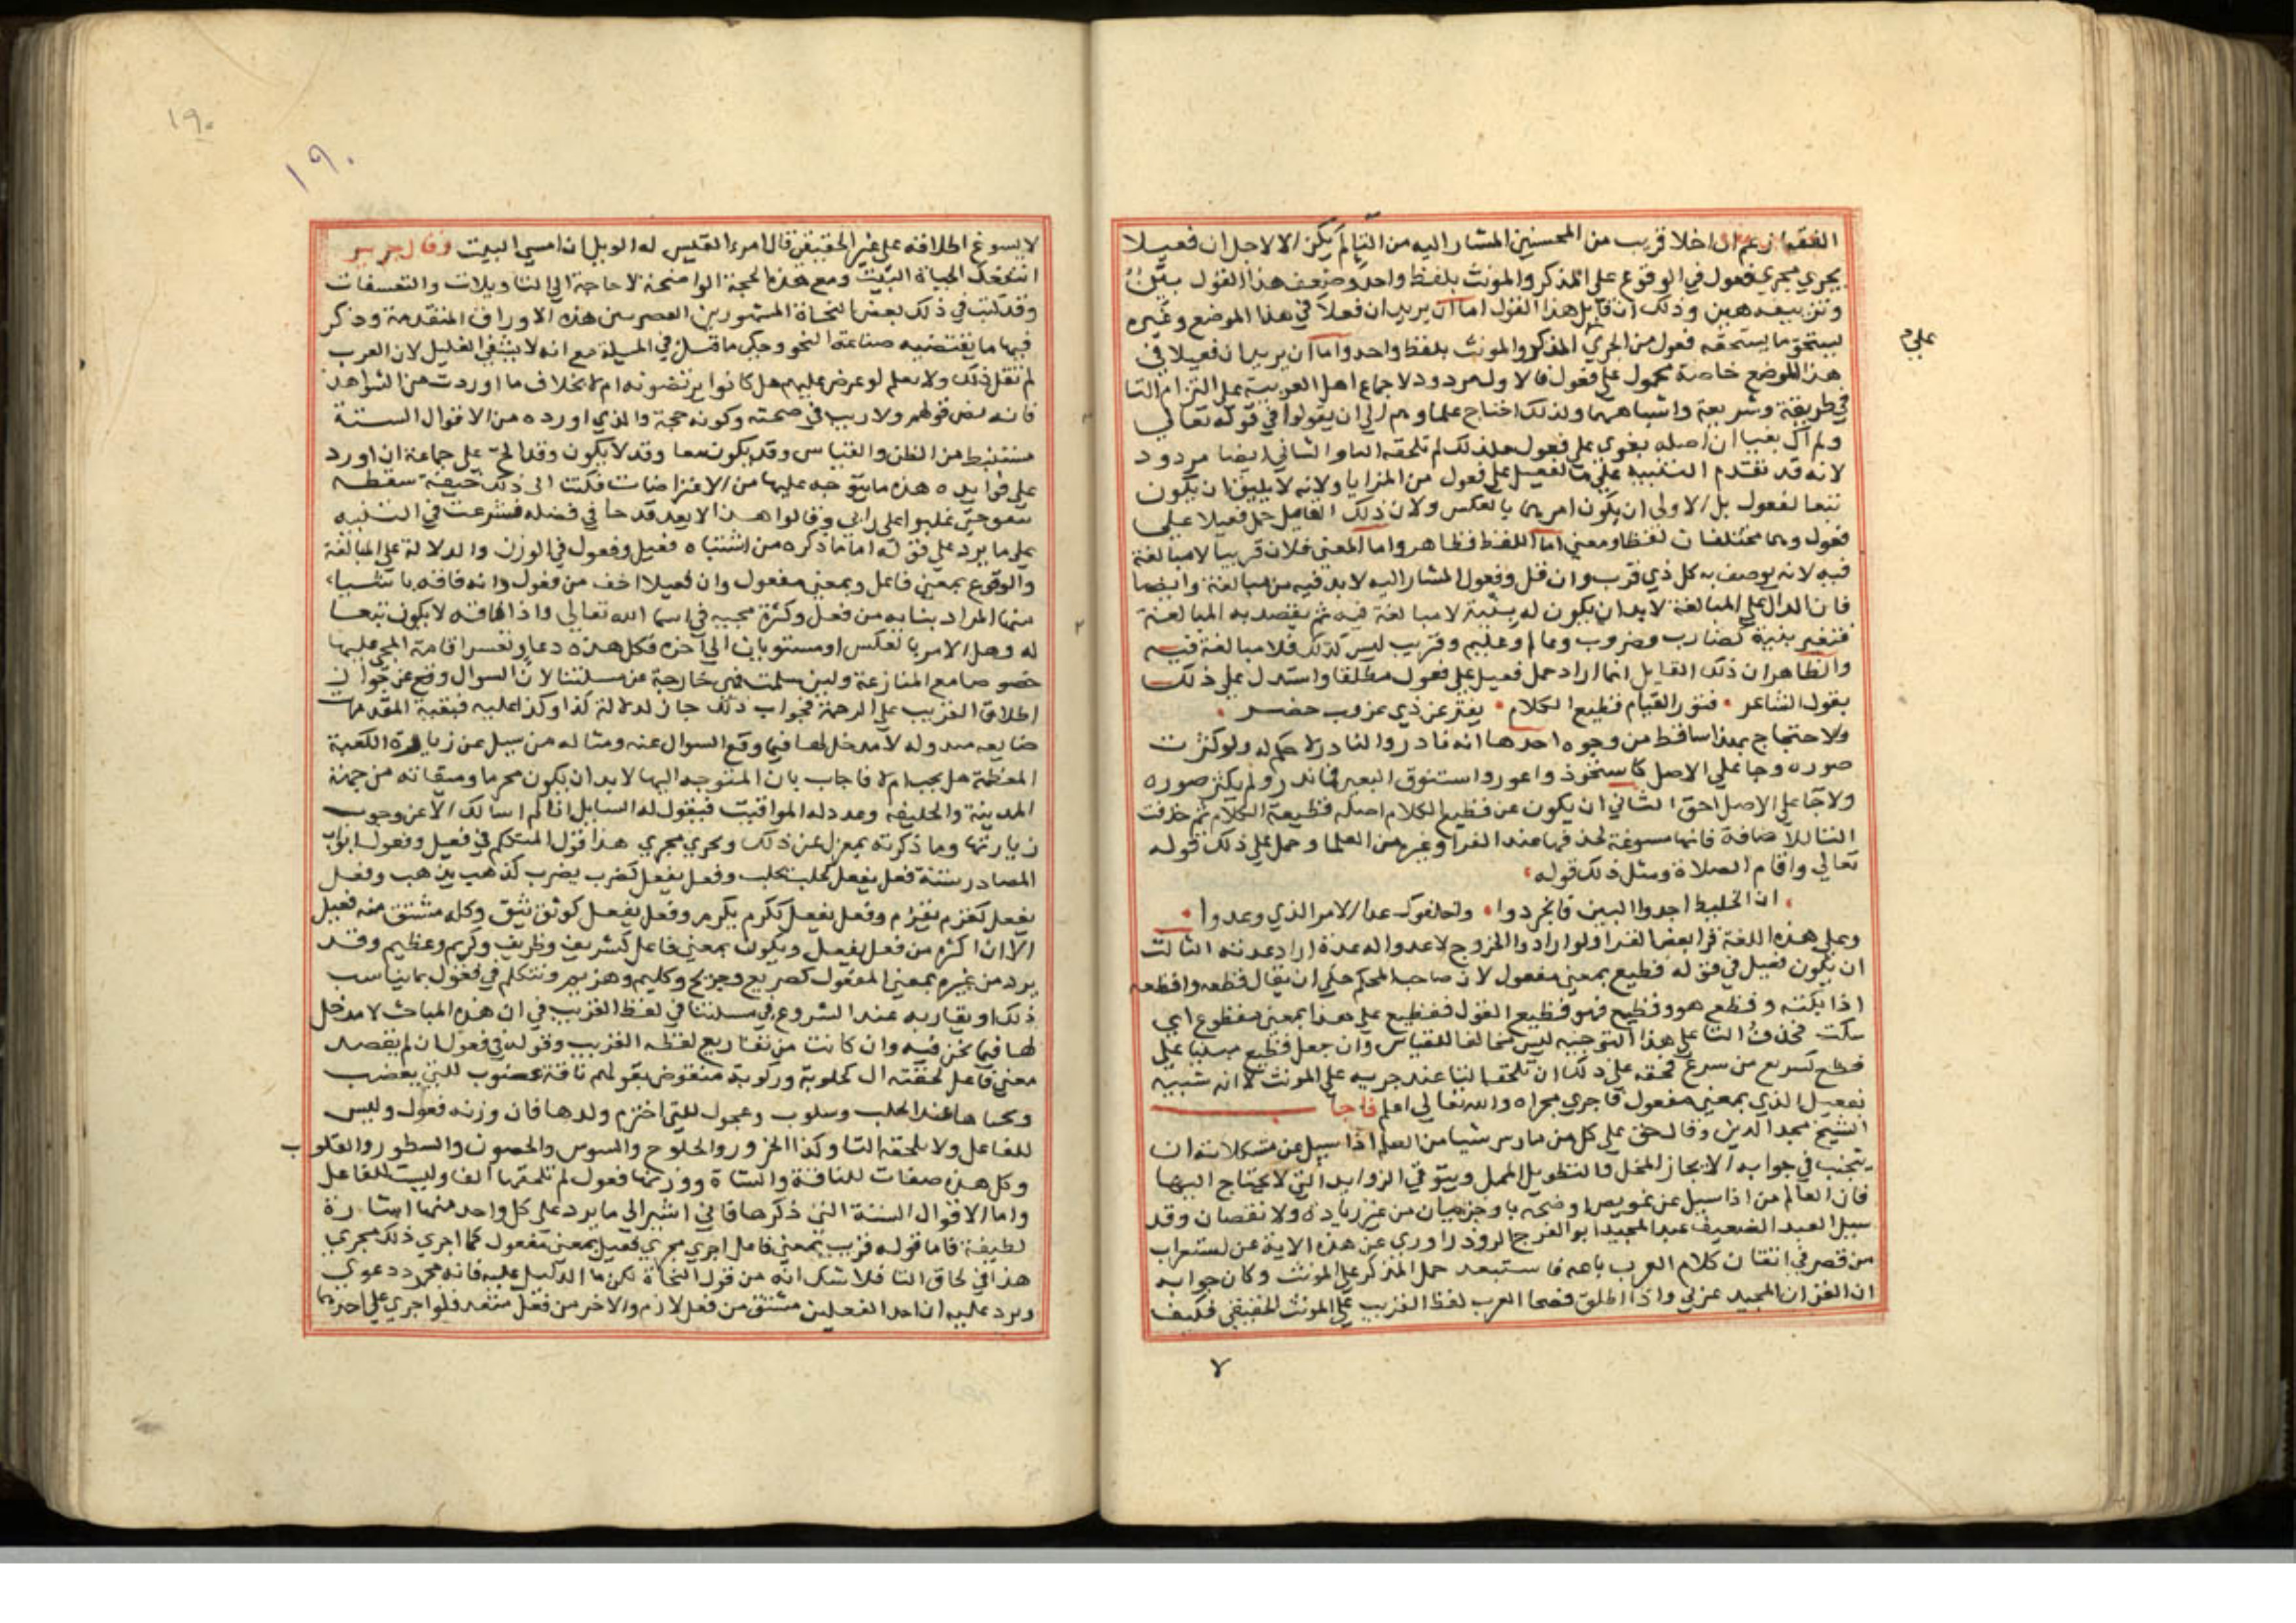 الفقها زعم ان اخلا قريب من المحسنين المشار اليه من التا لم يكن الا لاجل ان فعيلا
يجري مجري فعول في الوقوع علي المذكر والمونث بلفظ واحد وضعف هذا القول بين
وتزييفه هين وذلك ان قايل هذا القول اما ان يريد ان فعيلا في هذا الموضع وغيره
يستحق ما يستحقه فعول من الجري المذكر والمونث بلفظ واحد واما ان يريد ان فعيلا في
علي م
هذا الموضع خاصة محمول علي فعول فالاول مردود لاجماع اهل العربية علي التزام التا
في طريقة وشريعة واشباههما ولذلك احتاج علماوهم الي ان يقولوا في قوله تعالي
ولم اك بغيا ان اصله بغوي علي فعول فلذلك لم تلحقه التا والثاني ايضا مردود
لانه قد تقدم التنبيه علي ما لفعيل علي فعول من المزايا ولانه لا يليق ان يكون
تبعا لفعول بل الاولي ان يكون امرهما بالعكس ولان ذلك القايل حمل فعيلا علي
فعول وهما مختلفان لفظا ومعني اما اللفظ فظاهر واما المعني فلان قريبا لا مبالغة
فيه لانه يوصف به كل ذي قرب وان قل وفعول المشار اليه لا بد فيه من مبالغة وايضا
فان الدال علي المبالغة لا بد ان يكون له بنية لا مبالغة فيه ثم يقصد به المبالغة
فتغير بنية كضارب وضروب وعالم وعليم وقريب ليس كذلك فلا مبالغة فيه
والظاهر ان ذلك القايل انما اراد حمل فعيل علي فعول مطلقا واستدل علي ذلك
بقول الشاعر فتور القيام قطيع الكلام يفتر عن ذي غروب خصر
ولا حتجاج بهذا ساقط من وجوه احدها انه نادر والنادر لا حكم له ولو كثرت
صوره وجا علي الاصل كاستحوذ واعور واستنوق البعير فما ندر ولم يكثر صوره
ولا جا علي الاصل احق الثاني ان يكون عن قطيع الكلام اصله قطيعة الكلام ثم حذفت
التا للاضافة فانها مسوغة لحذفها عند الفرا وغيره من العلما وحمل علي ذلك قوله
تعالي واقام الصلاة ومثل ذلك قوله
ان الخليط اجدوا البين فانجردوا واخلفوك عدا الامر الذي وعدوا
وعلي هذه اللغة قرا بعض القرا ولو ارادوا الخروج لاعدوا له عدة اراد عدته الثالث
ان يكون فعيل في قوله قطيع بمعني مفعول لان صاحب المحكم حكي ان يقال قطعه واقطعه
اذا بكته وقطع هو وقطيع فهو قطيع القول فقطيع علي هذا بمعني مقطوع اي
سكت فحذف التا علي هذا التوجيه ليس مخالفا للقياس وان جعل قطيع مبنيا علي
قطع كسريع من سرع فحقه علي ذلك ان تلحقه التا عند جريه علي المونث لانه شبيه
بفعيل الذي بمعني مفعول فاجري مجراه والله تعالي اعلم فاجا
الشيخ مجد الدين وقال حق علي كل من مارس شيا من العلم اذا سيل عن مشكلاته ان
يتجنب في جوابه الايجاز المخل والتطويل الممل ويتوقي الزوايد التي لا يحتاج اليها
فان العالم من اذا سيل عن عويص اوضحه باوجز بيان من غير زيادة ولا نقصان وقد
سيل العبد الضعيف عبد المجيد ابو الفرج الروذراوري عن هذه الاية عن استغراب
من قصر في اتقان كلام العرب باعه فاستبعد حمل المذكر علي المونث وكان جوابه
ان القران المجيد عربي واذا اطلق فصحا العرب لفظ القريب علي المونث الحقيقي فكيف
١٩٠
١٩٠
لا يسوغ اطلاقه علي غير الحقيقي قال امرء القيس له الويل ان امسي البيت وقال جرير
اتنفعك الحياة البيت ومع هذه الحجة الواضحة لا حاجة الي التاويلات والتعسفات
وقد كتب في ذلك بعض النحاة المشهورين العصريين هذه الاوراق المتقدمة وذكر
فيها ما يقتضيه صناعة النحو وحكي ما قيل في المسيلة مع انه لا يشفي الغليل لان العرب
لم تقل ذلك ولا يعلم لو عرض عليهم هل كانوا يرتضونه ام لا بخلاف ما اوردت من الشواهد
فانه نص قولهم ولا ريب في صحته وكونه حجة والذي اورده من الاقوال الستة
مستنبط من الظن والقياس وقد يكون معا وقد لا يكون وقد الح علي جماعة ان اورد
علي فوايده هذه ما يتوجه عليها من الاعتراضات فكتبت الي ذلك خيفة سقطه
حتي غلبوا علي رايي وقالوا هذا لا يعد قدحا في فضله فشرعت في التنبيه
علي ما يرد علي قوله اما ما ذكره من اشتباه فعيل وفعول في الوزن والدلالة علي المبالغة
والوقوع بمعني فاعل وبمعني مفعول وان فعيلا اخف من فعول وانه فاقه باشيا
منها اطراد بنايه من فعل وكثرة مجيه في اسما الله تعالي واذا فاقه لا يكون تبعا
له وهل الامر بالعكس او مستويان الي اخره فكل هذه دعاو تعسر اقامة الحجج عليها
خصوصا مع المنازعة ولين سلمت فهي خارجة عن مسلتنا لان السوال وقع عن جواز
اطلاق القريب علي الرحمة فجواب ذلك جاز لدلالة كذا وكذا عليه فبقية المقدمات
ضايعه مبدوله لا مدخل لها فيما وقع السوال عنه ومثاله من سيل عن زيارة الكعبة
المعظمة هل يجب ام لا فاجاب بان المتوجه اليها لا بد ان يكون محرما وميقاته من جهة
المدينة ذو الحليفه وعدد له المواقيت فيقول له السايل انا لم اسالك الا عن وجوب
زيارتها وما ذكرته بمعزل عن ذلك ويجري مجري هذا قول المتكلم في فعيل وفعول ابواب
المصادر ستة فعل يفعل كحلب يحلب وفعل يفعل كضرب يضرب كذهب يذهب وفعل
يفعل وفعل يفعل ككرم يكرم وفعل يفعل كوثق يثق وكله مشتق منه فعيل
الا ان اكثره من فعل يفعل ويكون بمعني فاعل كشريف وظريف وكريم وعظيم وقد
يرد من غيره بمعني المفعول كصريع وجريح وكليم وهزبر ونتكلم في فعول بما يناسب
ذلك او يقاربه عند الشروع في مسلتنا في لفظ القريب في ان هذه المباحث لا مدخل
لها فيما نحن فيه وان كانت من تفاريع لفظه القريب وقوله في فعول ان لم يقصد
معني فاعل لحقته ال كحلوبة وركوبة منقوض بقولهم ناقة عصوب للتي يعصب
عند الحلب وسلوب وعجول للتي اخترم ولدها فان وزنه فعول وليس
للفاعل ولا يلحقه التا وكذا الجزور والحلوح والسوس والحصون والسطور والقلوب
وكل هذه صفات للناقة والشاة ووزنها فعول لم تلحقها الها وليست للفاعل
واما الاقوال الستة التي ذكرها فاني اشير الي ما يرد علي كل واحد منها اشارة
لطيفة فاما قوله قريب بمعني فاعل اجري مجري فعيل بمعني مفعول كما اجري ذلك مجري
هذا في لحاق التا فلا شك انه من قول النحاة لكن ما الدليل عليه فانه مجرد دعوي
ويرد عليه ان احد الفعلين مشتق من فعل لازم والاخر من فعل متعد فلو اجري علي احدهما